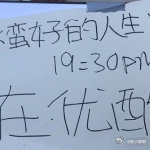 蛮好的人生
19:30pm
在优酷